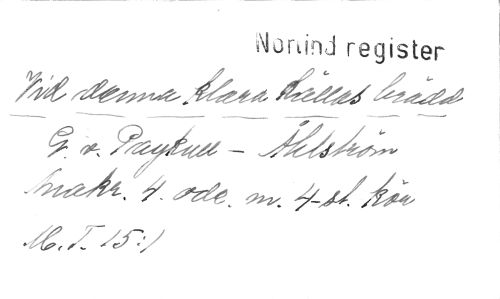 Nomind register
Vid denna klara källas brädd
G. v. Paykull - Åhlström
Anakr. 4. ode. m. 4-st. kör
M.T. 15:1